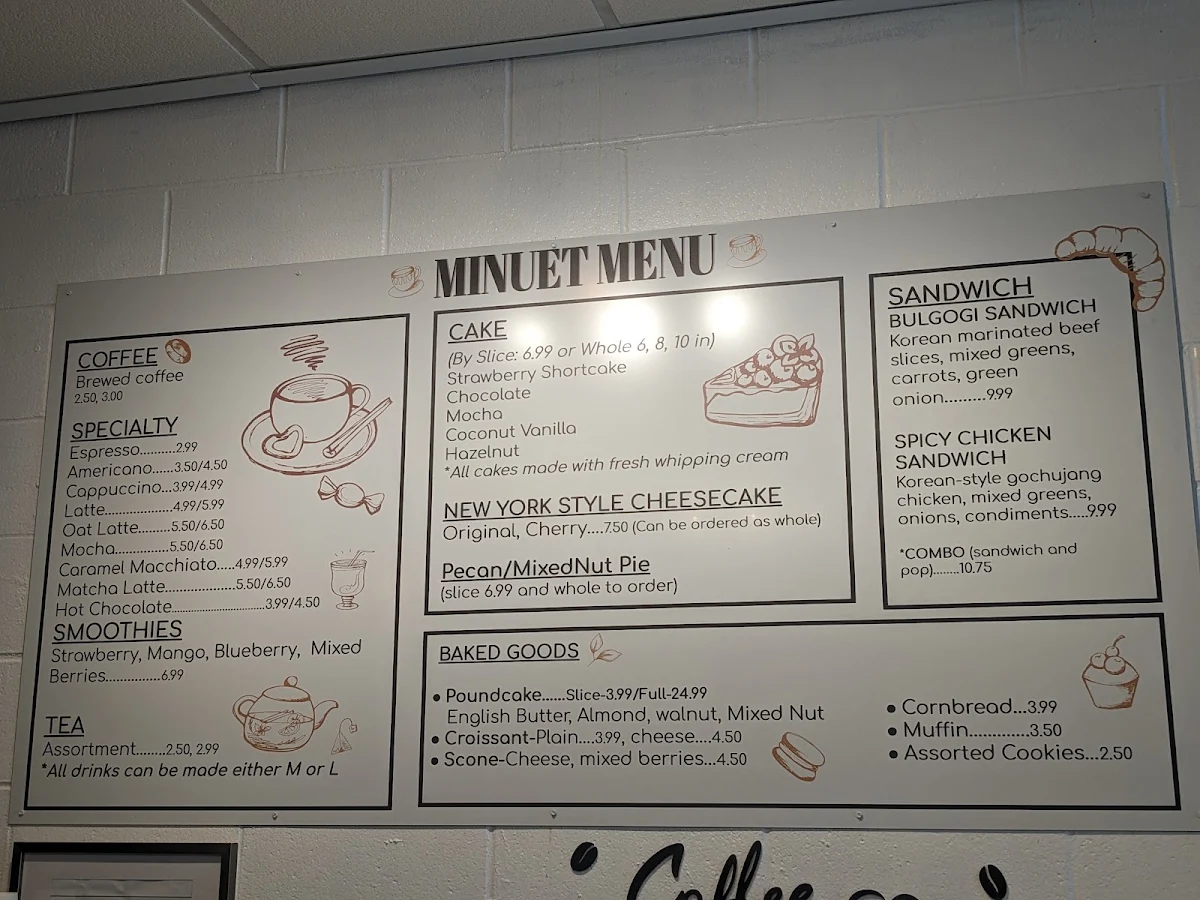 MINUET MENU
COFFEE
Brewed coffee
2.50, 3.00
SPECIALTY
Espresso..........2.99
Americano......3.50/4.50
Cappuccino...3.99/4.99
Latte...................4.99/5.99
Oat Latte........5.50/6.50
Mocha...............5.50/6.50
Caramel Macchiato.....4.99/5.99
Matcha Latte..................5.50/6.50
Hot Chocolate................................3.99/4.50
SMOOTHIES
Strawberry, Mango, Blueberry, Mixed
Berries...............6.99
TEA
Assortment........2.50, 2.99
*All drinks can be made either M or L
CAKE
(By Slice: 6.99 or Whole 6, 8, 10 in)
Strawberry Shortcake
Chocolate
Mocha
Coconut Vanilla
Hazelnut
*All cakes made with fresh whipping cream
NEW YORK STYLE CHEESECAKE
Original, Cherry....7.50 (Can be ordered as whole)
Pecan/MixedNut Pie
(slice 6.99 and whole to order)
SANDWICH
BULGOGI SANDWICH
Korean marinated beef
slices, mixed greens,
carrots, green
onion.........9.99
SPICY CHICKEN
SANDWICH
Korean-style gochujang
chicken, mixed greens,
onions, condiments.....9.99
*COMBO (sandwich and
pop)........10.75
BAKED GOODS
• Poundcake......Slice-3.99/Full-24.99
English Butter, Almond, walnut, Mixed Nut
• Croissant-Plain....3.99, cheese....4.50
• Scone-Cheese, mixed berries...4.50
• Cornbread...3.99
• Muffin.............3.50
• Assorted Cookies...2.50
Coffee